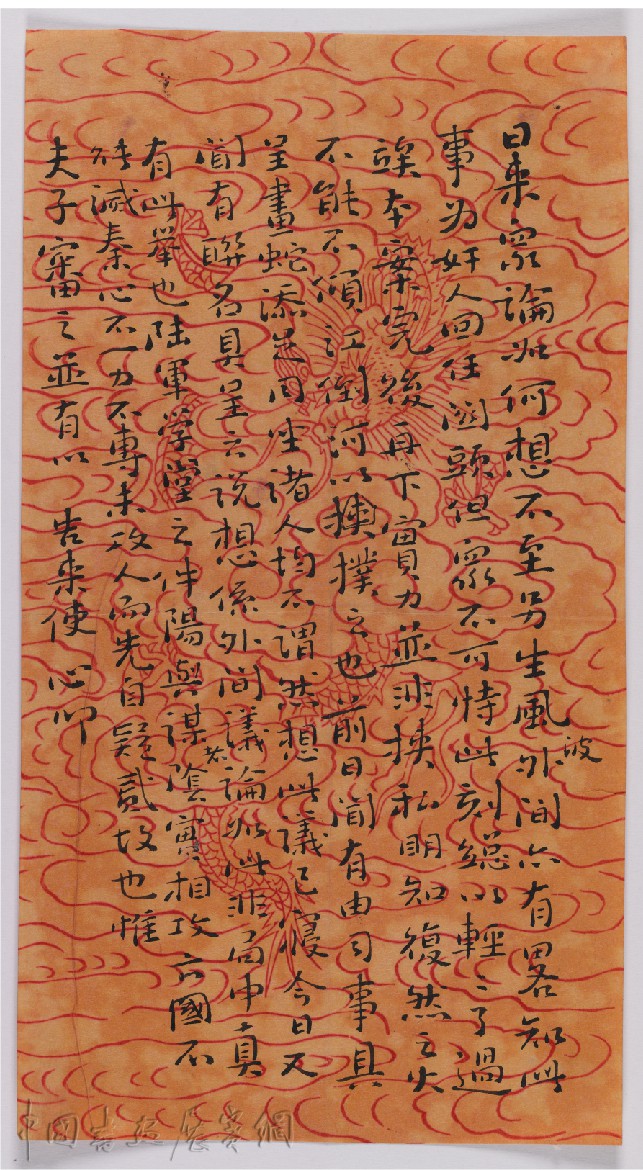 日来众論如何想不至另生風波外间亦有畧知此
事为奸人回任関頭但眾不可恃此刻總以輕〻了過
竢本案完後再下實力並非挾私明知復然之火
不能不傾江倒河以撲之也前日聞有由司事具
呈畫蛇添足同坐諸人均不謂然想此議已寝今日又
聞有聯名具呈之说想係外间議論如此非局中真
有此舉也陸軍學堂之件陽與謀者陰實相攻六國不
能滅秦心不一力不專未攻人而先自疑貳故也惟
夫子審之並有以告来使心叩
中国书法展赛網